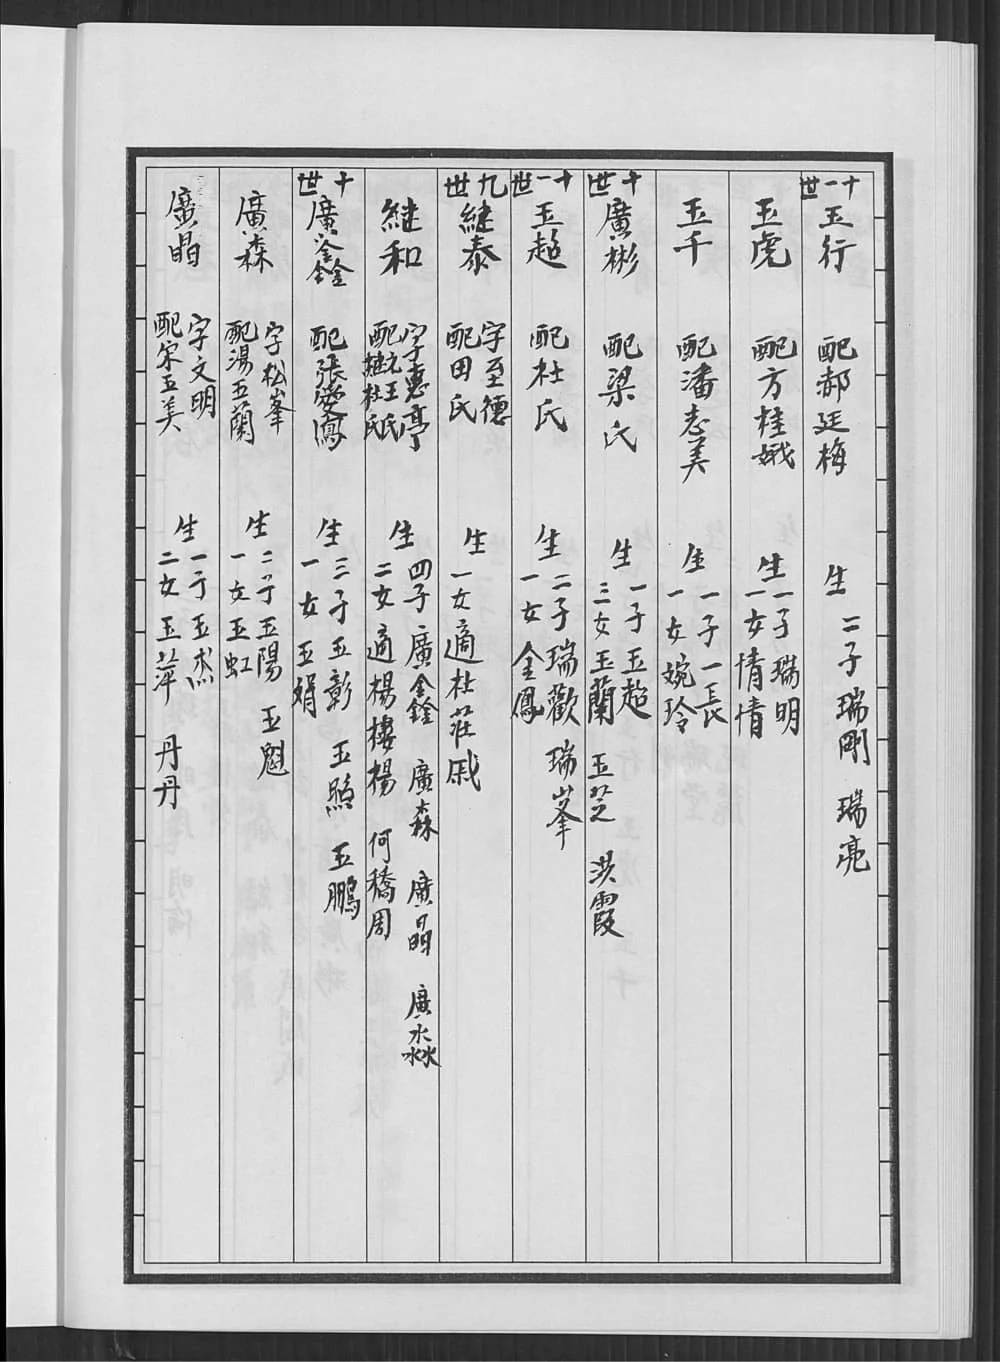 十一世
玉行 配郝廷梅 生 二子瑞剛 瑞亮
玉虎 配方桂娥 生 一子瑞明
一女情情
玉千 配潘志美 生 一子一長
一女婉玲
十世
廣彬 配梁氏 生 一子玉超
三女玉蘭 玉芝 洪霞
十一世
玉超 配杜氏 生 二子瑞歡 瑞峯
一女金鳳
九世
継泰 字至德
配田氏 生 一女適杜莊戚
継和 字惠亭
配元王氏
継杜氏 生 四子廣鑫 廣森 廣晶 廣淼
二女適楊樓楊 何橋周
十世
廣鑫 配張愛鳳 生 三子玉彰 玉照 玉鵬
一女玉娟
廣森 字松峯
配湯玉蘭 生 二子玉陽 玉魁
一女玉虹
廣晶 字文明
配宋玉美 生 一子玉杰
二女玉萍 丹丹